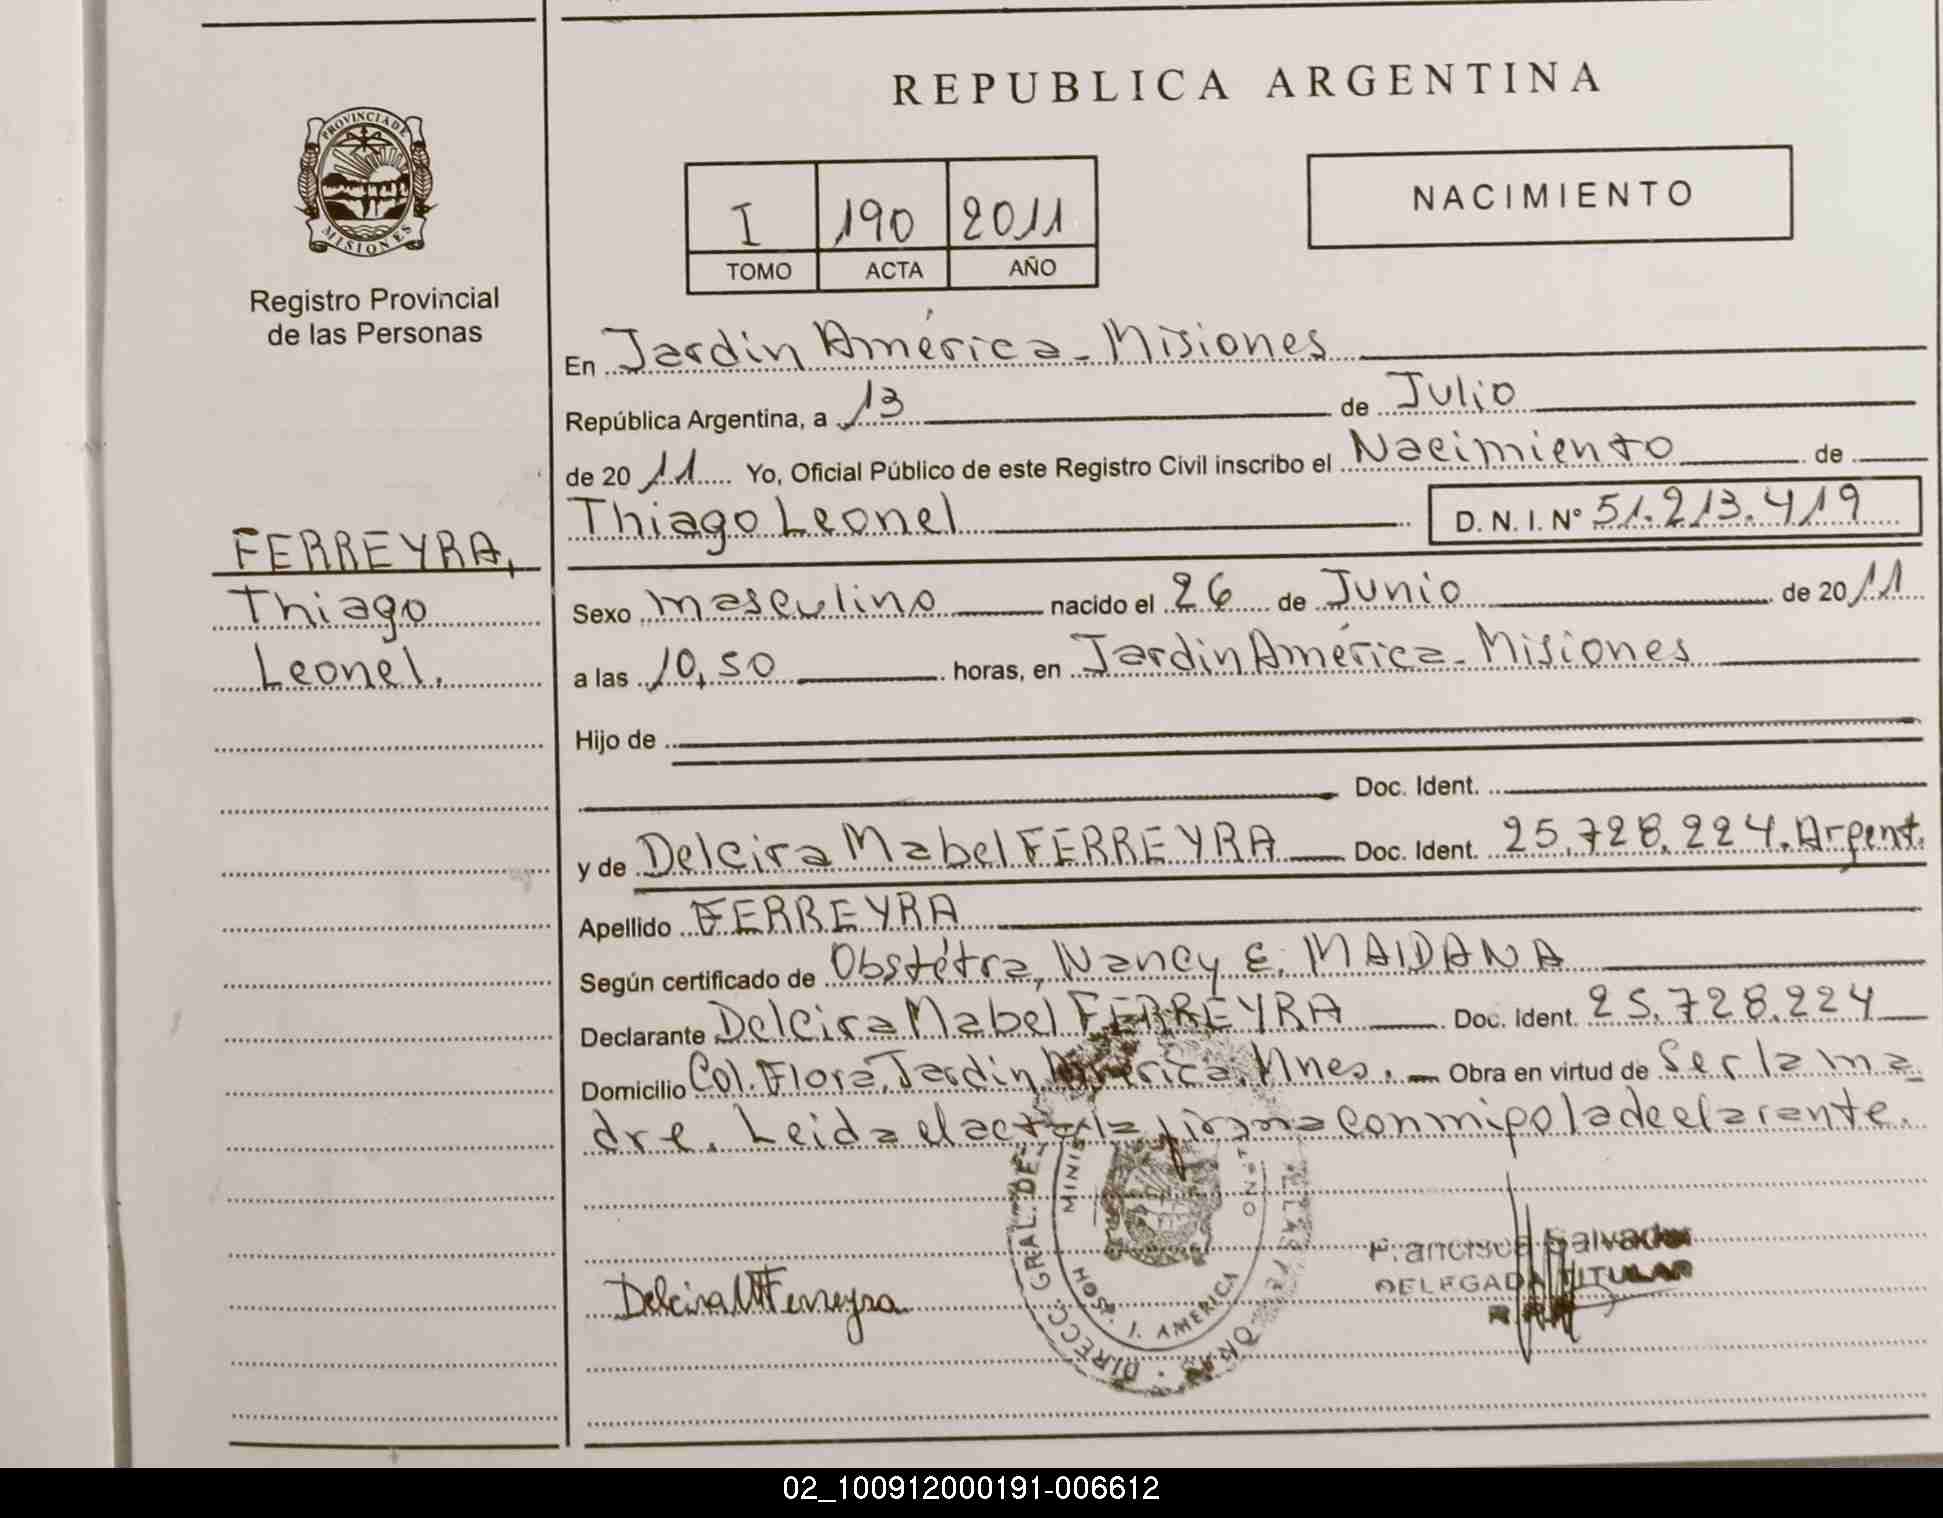 REPUBLICA ARGENTINA
PROVINCIA DE
MISIONES
Registro Provincial
de las Personas
I 190 2011
TOMO ACTA AÑO
NACIMIENTO
En Jardin América - Misiones
República Argentina, a 13 de Julio
de 20 11 Yo, Oficial Público de este Registro Civil inscribo el Nacimiento de
Thiago Leonel D. N. I. Nº 51.213.419
FERREYRA,
Thiago
Leonel.
Sexo masculino nacido el 26 de Junio de 20 11
a las 10,50 horas, en Jardin América - Misiones
Hijo de
Doc. Ident.
y de Delcira Mabel FERREYRA Doc. Ident. 25.728.224. Argent.
Apellido FERREYRA
Según certificado de Obstétra, Nancy E. MAIDANA
Declarante Delcira Mabel FERREYRA Doc. Ident. 25.728.224
Domicilio Col. Flora, Jardin América, Mnes. Obra en virtud de Ser la ma
dre. Leida el acta la firma con mi po la declarante.
DIRECC. GRAL. DE
MINIS
HOSP. J. AMERICA
Delcira M Ferreyra
Francisca Salvador
DELEGADA TITULAR
02_100912000191-006612